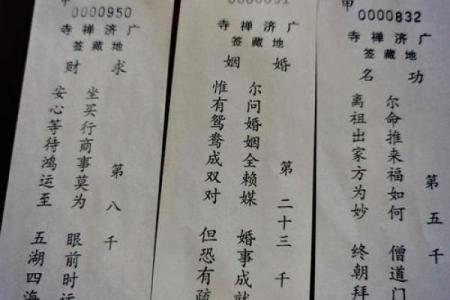 0000950
广济禅寺
地藏签
求财
第八千
坐买行商事莫为 眼前时运
安心等待鸿运至 五湖四海
广济禅寺
地藏签
婚姻
第二十三千
尔问婚姻全赖媒 婚事成就
惟有鸳鸯成双对 但恐有疏
甲 0000832
广济禅寺
地藏签
功名
第五千
尔命推来福如何 僧道门
离祖出家方为妙 终朝拜